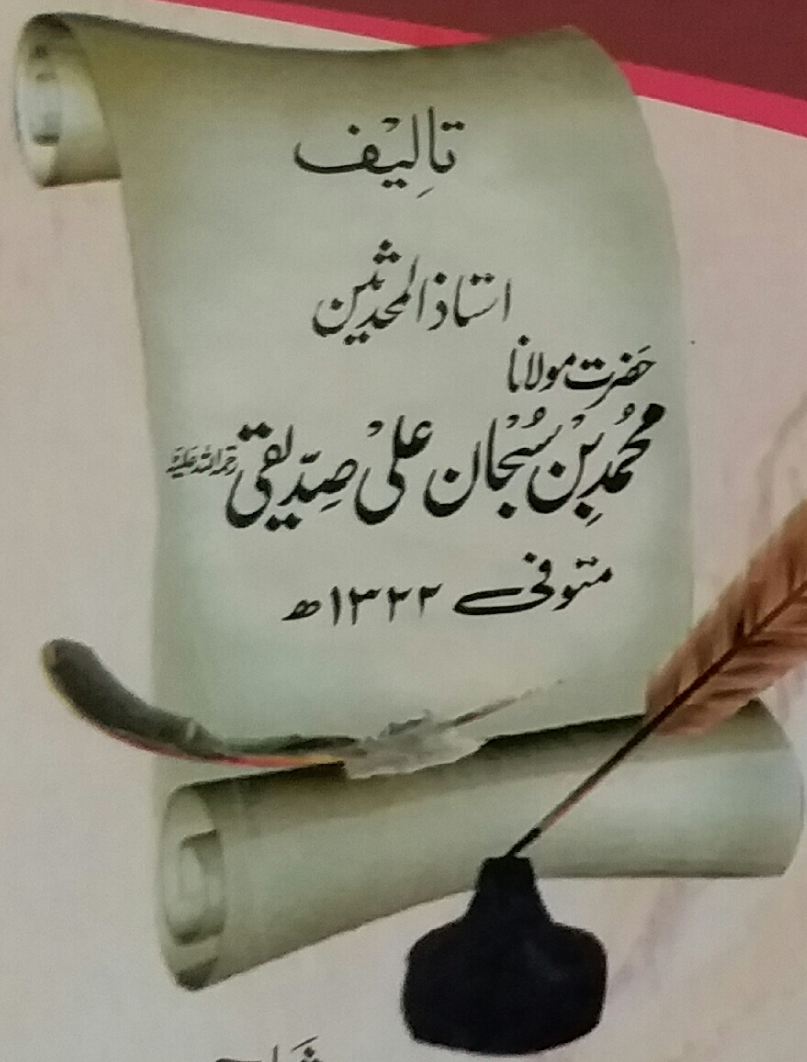 تالِیْف
استاذ المحدثین
حَضرت مولانا
محمُد بِنْ سُبْحَان علیْ صِدّیقی رحمۃ اللہ علیہ
متوفیٰ ۱۳۲۲ھ